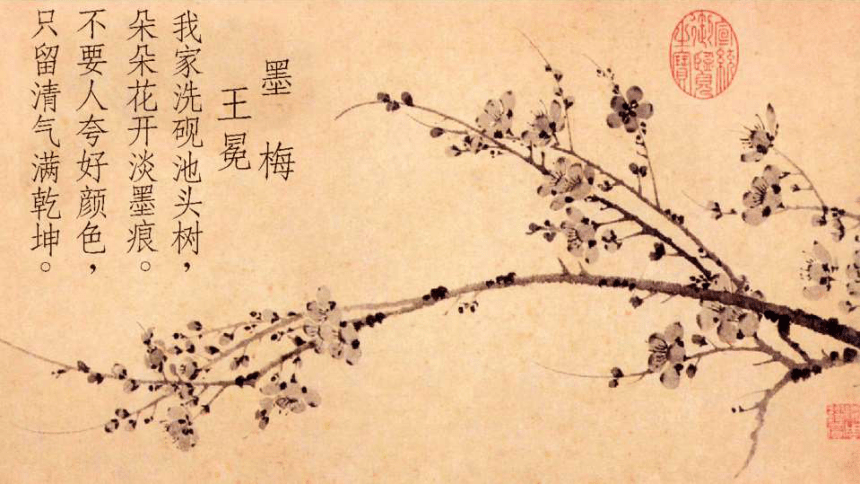 墨梅
王冕
我家洗砚池头树，
朵朵花开淡墨痕。
不要人夸好颜色，
只留清气满乾坤。
宣统御览之宝